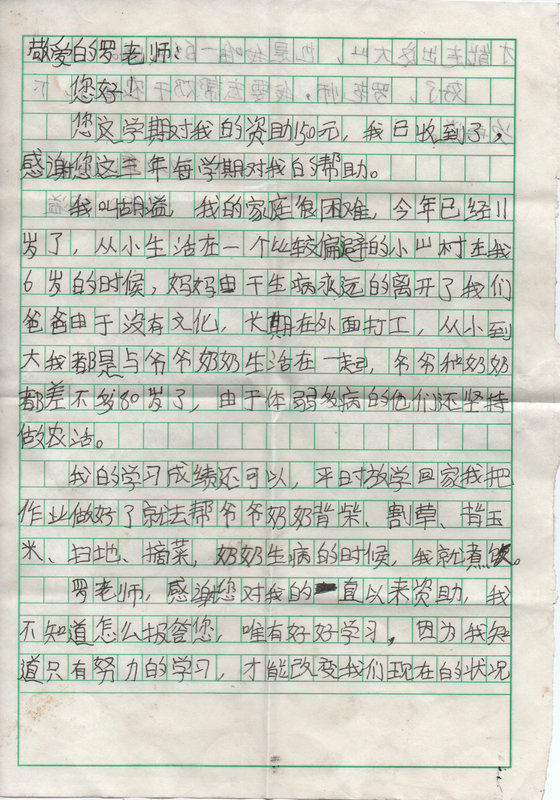 敬爱的罗老师:
您好!
您这学期对我的资助150元，我已收到了，
感谢您这三年每学期对我的帮助。
我叫胡溢，我的家庭很困难，今年已经11
岁了，从小生活在一个比较偏避的小山村在我
6岁的时候，妈妈由于生病永远的离开了我们
爸爸由于没有文化，长期在外面打工，从小到
大我都是与爷爷奶奶生活在一起，爷爷和奶奶
都差不多80岁了，由于体弱多病的他们还坚持
做农活。
我的学习成绩还可以，平时放学回家我把
作业做好了就去帮爷爷奶奶背柴、割草、背玉
米、扫地、摘菜，奶奶生病的时候，我就煮饭。
罗老师，感谢您对我的一直以来资助，我
不知道怎么报答您，唯有好好学习，因为我知
道只有努力的学习，才能改变我们现在的状况